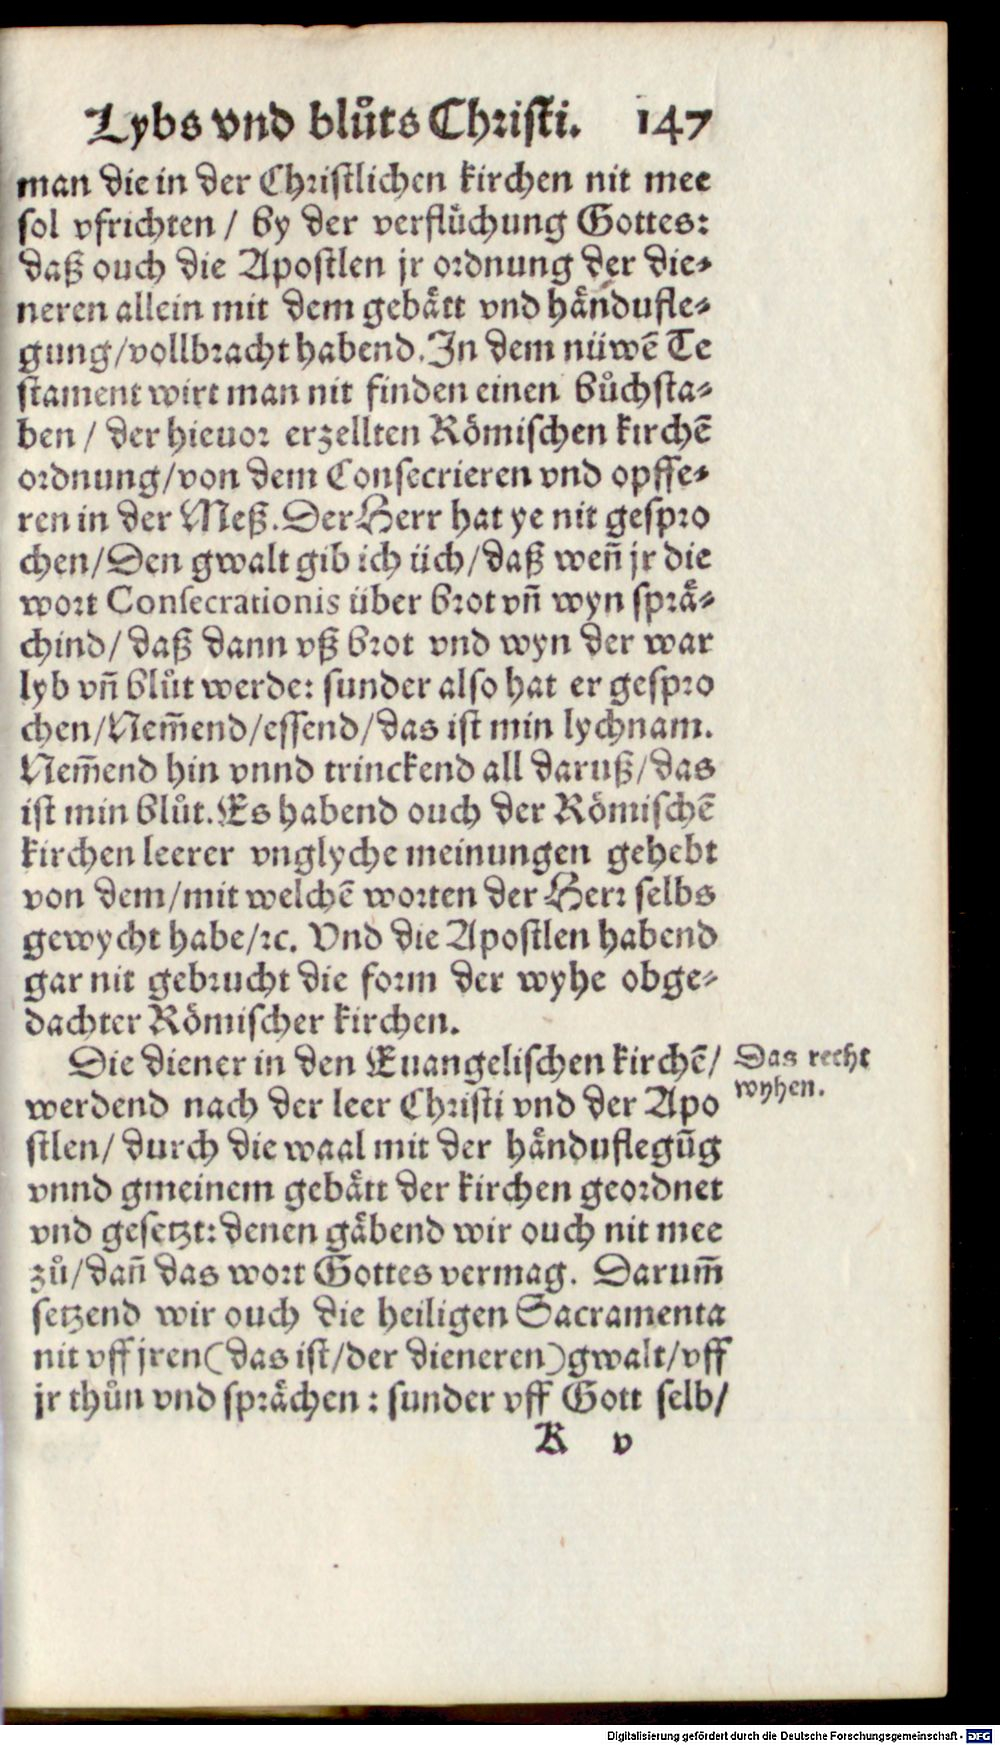 Lybs vnd blůts Christi. 147
man die in der Christlichen kirchen nit mee
sol vfrichten / by der verflůchung Gottes:
daß ouch die Apostlen jr ordnung der die⸗
neren allein mit dem gebaͤtt vnd haͤndufle⸗
gung/vollbracht habend. In dem nüwẽ Te
stament wirt man nit finden einen bůchsta⸗
ben / der hieuor erzellten Roͤmischen kirchẽ
ordnung/von dem Consecrieren vnd opffe⸗
ren in der Meß. Der Herr hat ye nit gespro
chen/Den gwalt gib ich üch/daß weñ jr die
wort Consecrationis über brot vñ wyn spraͤ⸗
chind/ daß dann vß brot vnd wyn der war
lyb vñ blůt werde: sunder also hat er gespro
chen/Nem̃end/essend/das ist min lychnam.
Nem̃end hin vnnd trinckend all daruß/das
ist min blůt. Es habend ouch der Roͤmischẽ
kirchen leerer vnglyche meinungen gehebt
von dem/mit welchẽ worten der Herr selbs
gewycht habe/ꝛc. Vnd die Apostlen habend
gar nit gebrucht die form der wyhe obge⸗
dachter Roͤmischer kirchen.
Die diener in den Euangelischen kirchẽ/
werdend nach der leer Christi vnd der Apo
stlen/ durch die waal mit der haͤnduflegũg
vnnd gmeinem gebaͤtt der kirchen geordnet
vnd gesetzt: denen gaͤbend wir ouch nit mee
zů/dañ das wort Gottes vermag. Darum̃
setzend wir ouch die heiligen Sacramenta
nit vff jren(das ist/der dieneren)gwalt/vff
jr thůn vnd spraͤchen : sunder vff Gott selb/
K v
Das recht
wyhen.
Digitalisierung gefördert durch die Deutsche Forschungsgemeinschaft - DFG